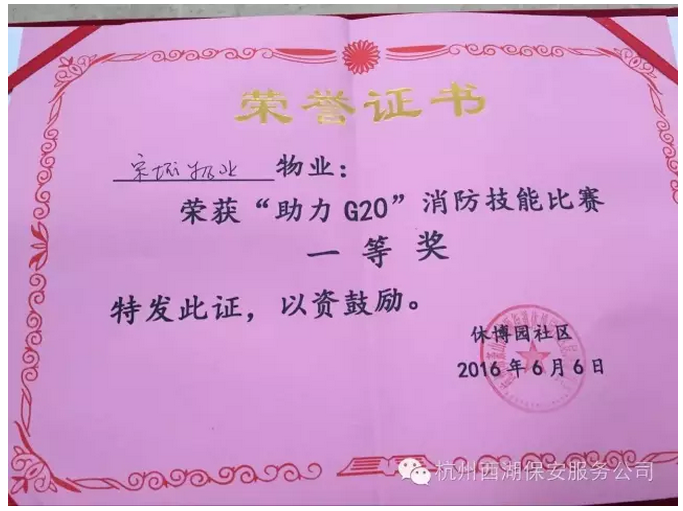 荣誉证书
宋城物业 物业：
荣获“助力 G20”消防技能比赛
一等奖
特发此证，以资鼓励。
休博园社区
2016 年 6 月 6 日
杭州西湖保安服务公司